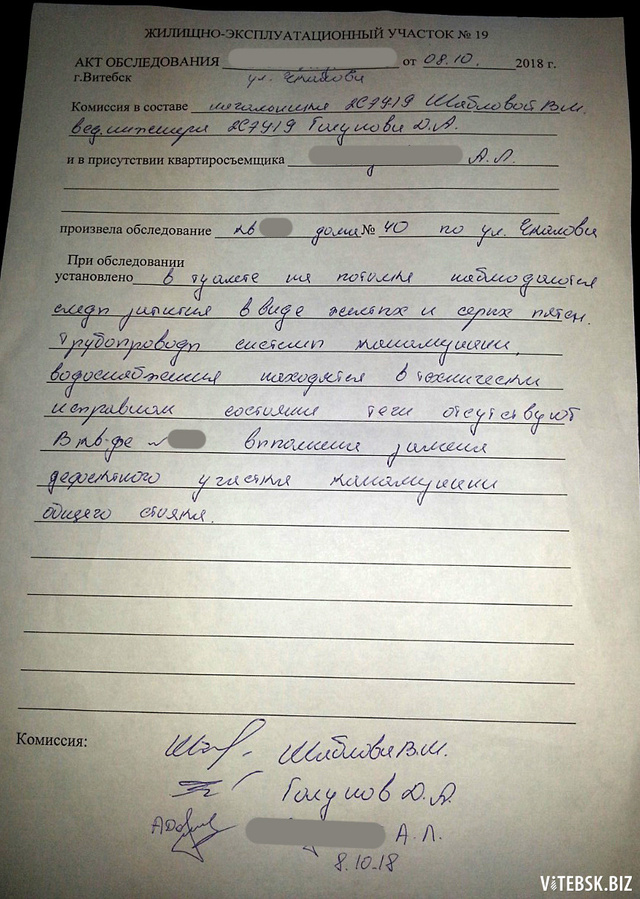 ЖИЛИЩНО-ЭКСПЛУАТАЦИОННЫЙ УЧАСТОК № 19
АКТ ОБСЛЕДОВАНИЯ от 08.10. 2018 г.
г.Витебск ул. Чкалова
Комиссия в составе начальника ЖЭУ19 Шабловой В.М.
вед.инженера ЖЭУ19 Голунова Д.А.
и в присутствии квартиросъемщика А.Л.
произвела обследование кв дома № 40 по ул. Чкалова
При обследовании
установлено в туалете на потолке наблюдаются
следы залития в виде желтых и серых пятен.
Трубопроводы системы канализации,
водоснабжения находятся в технически
исправном состоянии течи отсутствуют
В кв-ре № выполнена замена
дефектного участка канализации
общего стояка.
Комиссия:
Шаблова В.М.
Голунов Д.А.
А.Л.
8.10.18
VITEBSK.BIZ